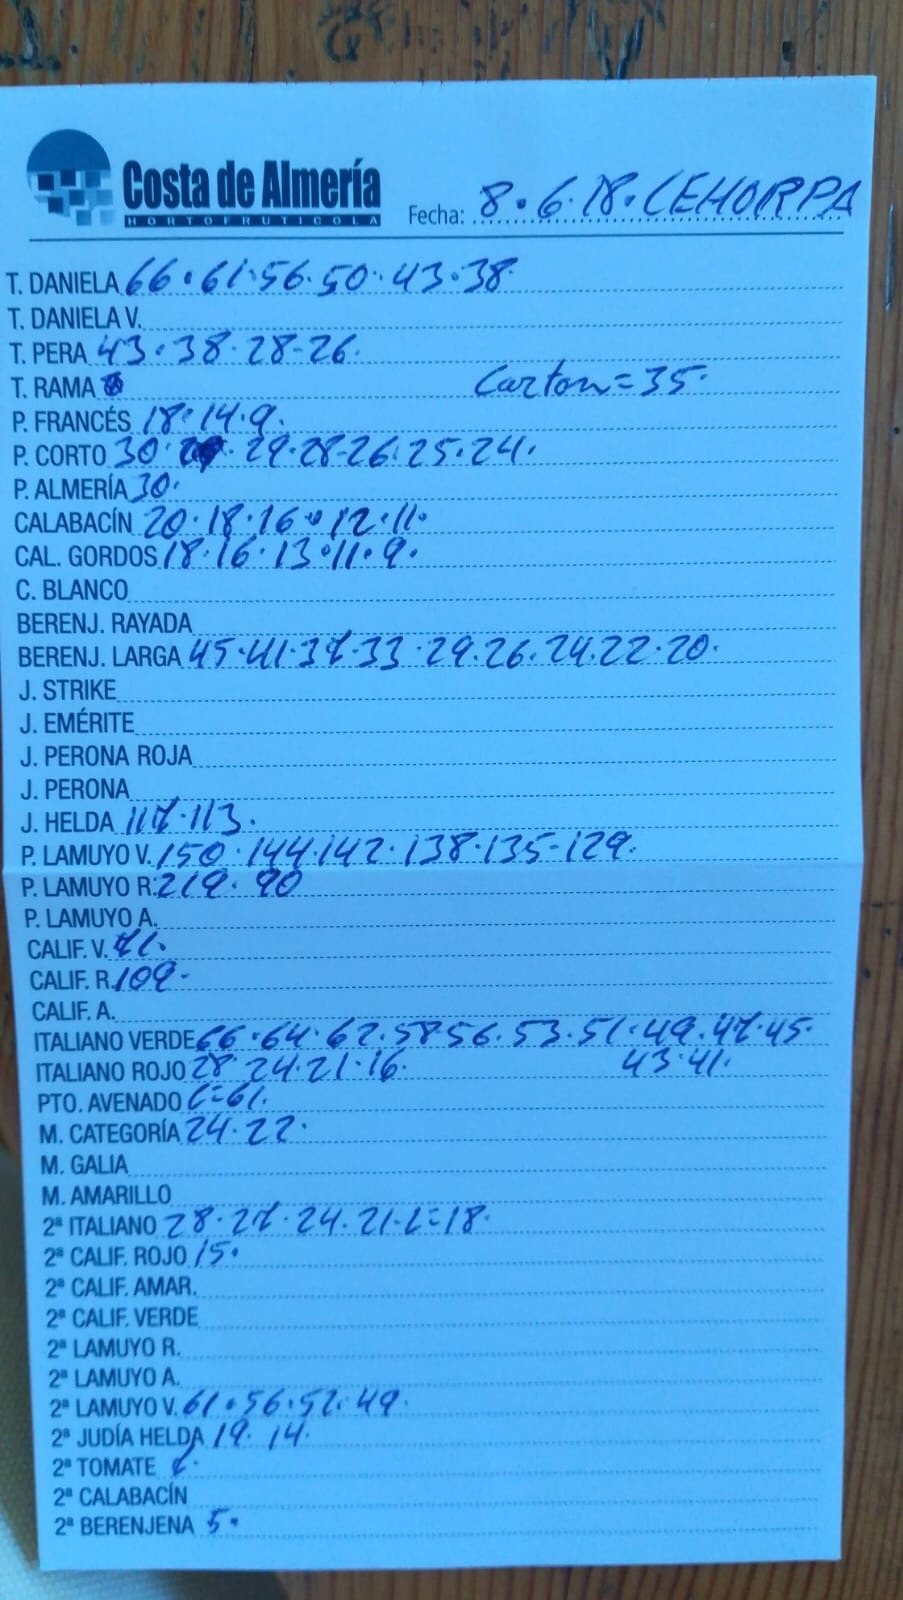 Costa de Almería
HORTOFRUTICOLA
Fecha: 8.6.18. CEHORPA
T. DANIELA 66.61.56.50.43.38.
T. DANIELA V.
T. PERA 43.38.28-26.
T. RAMA Carton=35.
P. FRANCÉS 18.14.9.
P. CORTO 30. 29.28-26.25.24.
P. ALMERÍA 30.
CALABACÍN 20.18.16.12.11.
CAL. GORDOS 18.16.13.11.9.
C. BLANCO
BERENJ. RAYADA
BERENJ. LARGA 45.41.37.33.29.26.24.22.20.
J. STRIKE
J. EMÉRITE
J. PERONA ROJA
J. PERONA
J. HELDA 117.113.
P. LAMUYO V. 150.144.142.138.135-129.
P. LAMUYO R. 219. 90
P. LAMUYO A.
CALIF. V. 71.
CALIF. R. 109-
CALIF. A.
ITALIANO VERDE 66.64.62.58.56.53.51.49.47.45.
43.41.
ITALIANO ROJO 28 24.21.16.
PTO. AVENADO C=61.
M. CATEGORÍA 24.22.
M. GALIA
M. AMARILLO
2ª ITALIANO 28.27.24.21-C=18.
2ª CALIF. ROJO 15.
2ª CALIF. AMAR.
2ª CALIF. VERDE
2ª LAMUYO R.
2ª LAMUYO A.
2ª LAMUYO V. 61.56.52.49.
2ª JUDÍA HELDA 19. 14.
2ª TOMATE
2ª CALABACÍN
2ª BERENJENA 5.